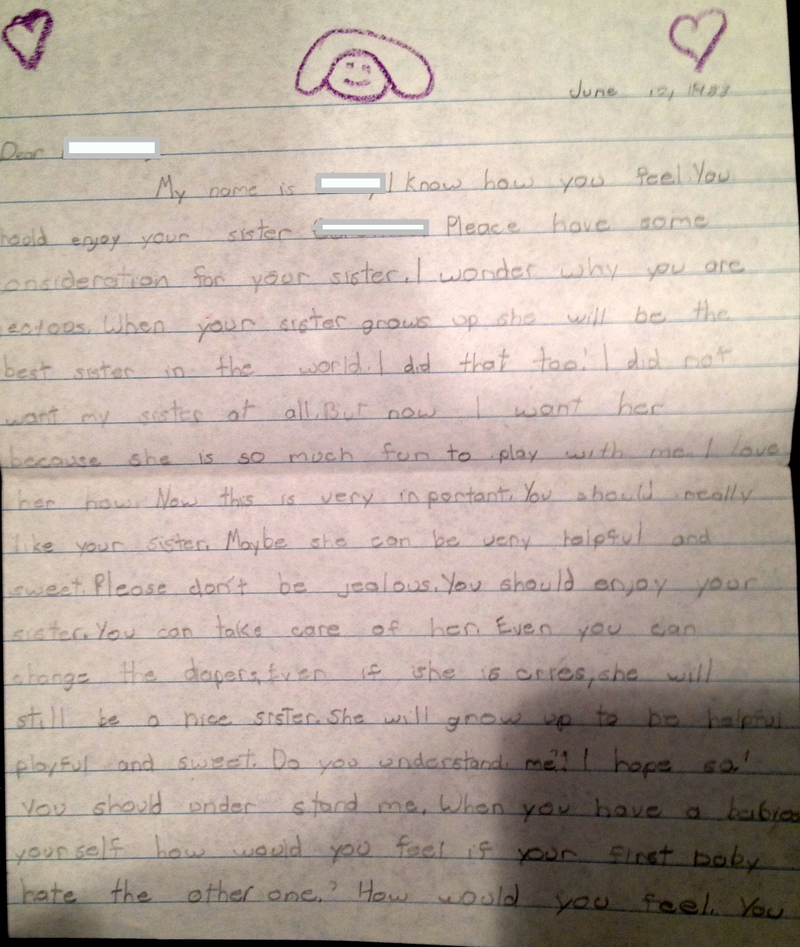 June 12, 1983
Dear
My name is , I know how you feel You
hoold enjoy your sister Pleace have some
onsideration for your sister. I wonder why you are
When your sister grows up she will be the
best sister in the world. I did that too! I did not
want my sister at all. But now I want her
because she is so much fun to play with me. I love
her now. Now this is very inportant. You should really
like your sister. Maybe she can be very helpful and
sweet. Please don't be jealous. You should enjoy your
sister. You can take care of her. Even you can
change the dapers, Even if she is crres, she will
still be a nice sister. She will grow up to be helpful
playful and sweet. Do you understand me?! I hope so!
You should under stand me. When you have a babies
yourself how would you feel if your first baby
hate the other one.? How would you feel. You